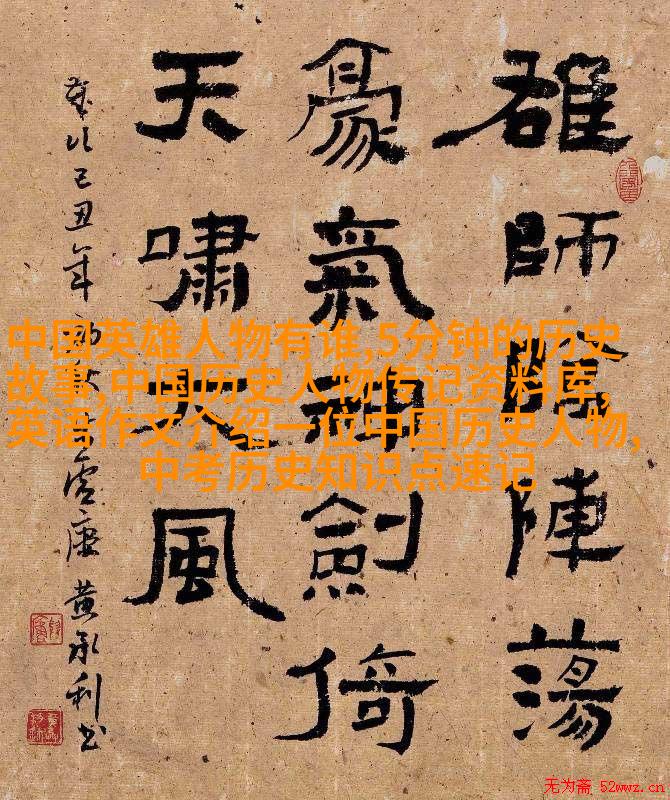 雄師陣蕩
豪氣神劍倚
天嘯大風
歲次己丑年
黄永利书
中国英雄人物有谁,5分钟的历史
故事,中国历史人物传记资料库,
英语作文介绍一位中国历史人物,
中考历史知识点速记
无为斋 52wwz.cn